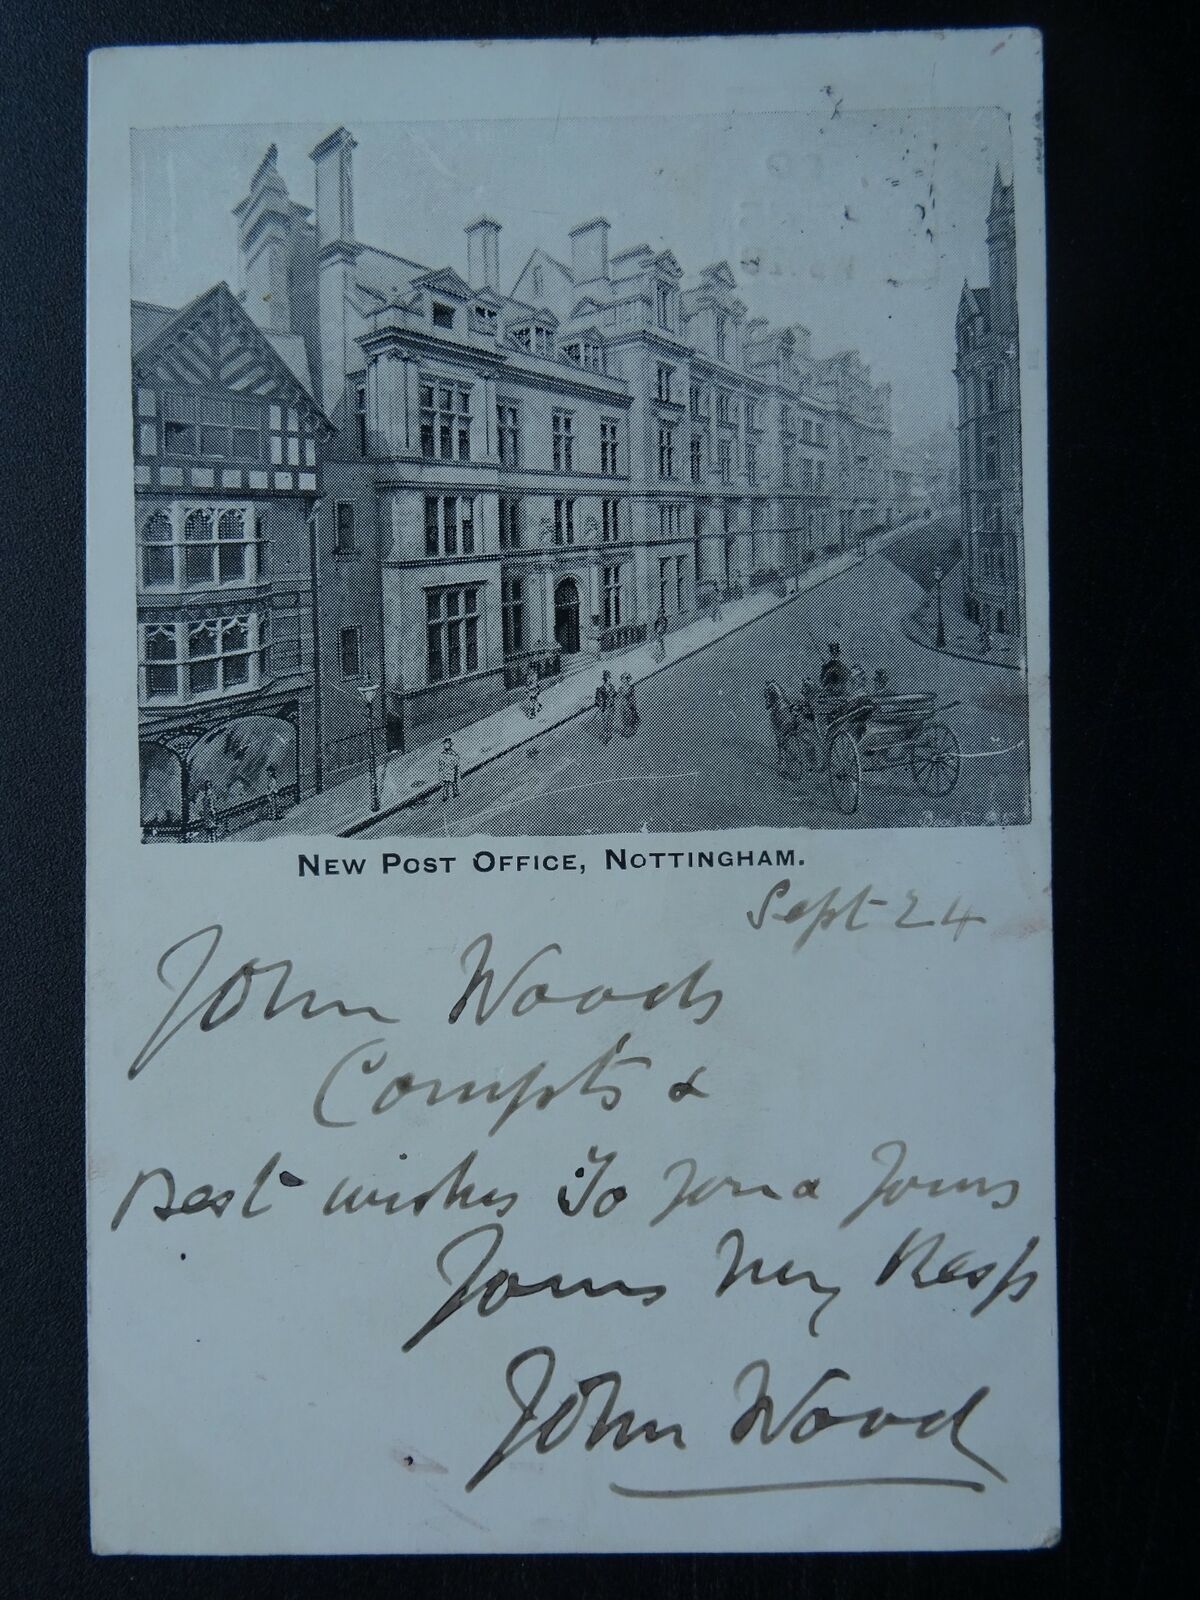 New Post Office, Nottingham.
Sept 24
John Woods
Compts &
Best wishes To you & Yours
Yours Very Resp
John Wood